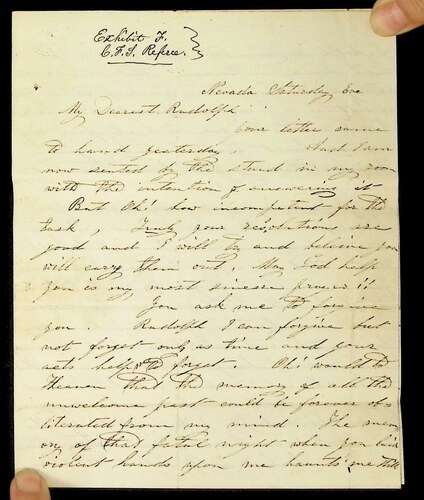 Exhibit F.
C.F.S. Referee.
Nevada Saturday Eve
My Dearest Rudolph
Your letter came
to hand yesterday. And I am
now seated by the stand in my room
with the intention of answering it
But Oh! how incompetent for the
task, Truly your resolutions are
good and I will try and believe you
will carry them out. May God help
you is my most sincere prayer!
You ask me to forgive
you. Rudolph I can forgive but
not forget only as time and your
acts help to forget. Oh! would to
Heaven that the memory of all the
unwelcome past could be forever ob-
literated from my mind. The mem
ory of that fatal night when you laid
violent hands upon me haunts me still